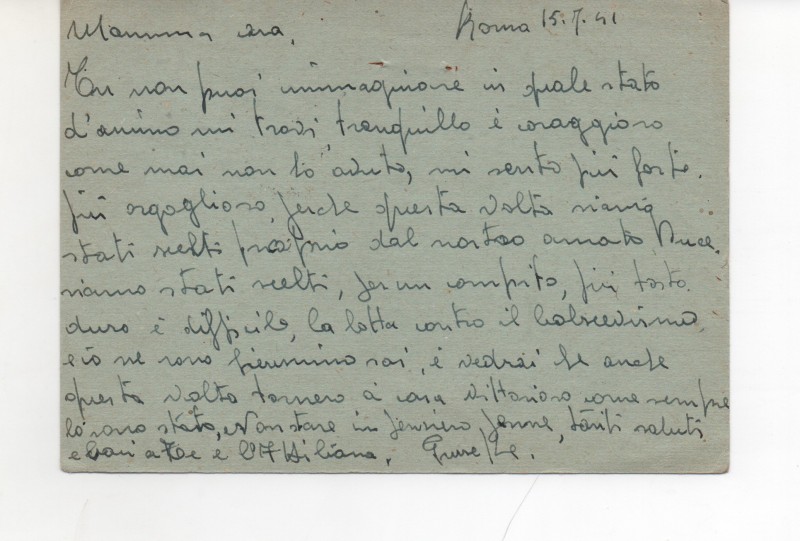 Mamma cara, Roma 15.7.41
Tu non puoi immaginare in quale stato
d'animo mi trovi, tranquillo è coraggioso
come mai non lo avuto, mi sento più forte.
più orgoglioso, perche questa volta siamo
stati scelti proprio dal nostro amato Duce.
siamo stati scelti, per un compito, più tosto
duro è difficile, la lotta contro il bolscevismo
e io ne sono fierissimo sai, è vedrai che anche
questa volta tornero à casa vittorioso come sempre
lo sono stato, Non stare in pensiero per me, tanti saluti
e baci a te e